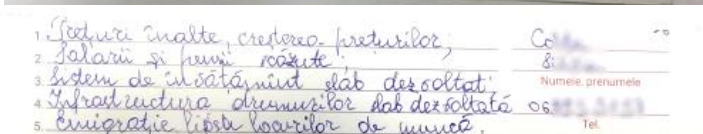 1. Prețuri înalte, creșterea prețurilor;
2. Salarii și pensii scăzute;
3. Sistem de învățămînt slab dezvoltat;
Numele, prenumele
4. Infrastructura drumurilor slab dezvoltată
5. Emigrație lipsa locurilor de muncă.
Tel.